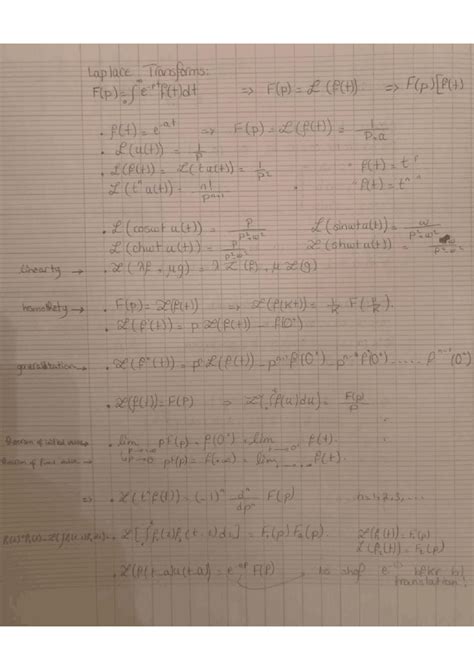 Laplace Transforms:
F(p) = ∫₀^∞ e^-pt f(t) dt ⇒ F(p) = ℒ(f(t)) ⇒ F(p)[f(t)
• f(t) = e^-at ⇒ F(p) = ℒ(f(t)) = 1/(p+a)
• ℒ(u(t)) = 1/p
• ℒ(f(t)) = ℒ(t u(t)) = 1/p² • f(t) = t
ℒ(t^n u(t)) = n!/p^(n+1) • f(t) = t^n
• ℒ(coswt u(t)) = p/(p²+w²) ℒ(sinwt u(t)) = w/(p²+w²)
ℒ(chwt u(t)) = p/(p²-w²) ℒ(shwt u(t)) = w/(p²-w²)
linearity → • ℒ(λf + μg) = λℒ(f) + μℒ(g)
homothety → • F(p) = ℒ(f(t)) ⇒ ℒ(f(kt)) = 1/k F(p/k).
• ℒ(f'(t)) = pℒ(f(t)) - f(0⁺)
generalisation → • ℒ(f^n(t)) = p^n ℒ(f(t)) - p^(n-1) f(0⁺) - p^(n-2) f'(0⁺) ..... f^(n-1)(0⁺)
• ℒ(f(t)) = F(p) ⇒ ℒ[∫₀^t f(u)du] = F(p)/p
theorem of initial value → • lim p→+∞ pF(p) = f(0⁺) = lim t→0⁺ f(t).
theorem of final value → lim p→0 pF(p) = f(+∞) = lim f(t).
⇒ • ℒ(t^n f(t)) = (-1)^n d^n/dp^n F(p) n=1,2,3,...
• ℒ[∫₀^t f₁(x) f₂(t-x) dx] = F₁(p) F₂(p). ℒ(f₁(t)) = F₁(p)
ℒ(f₂(t)) = F₂(p)
• ℒ(f(t-a)u(t-a)) = e^-ap F(p) → to shift by
translation!